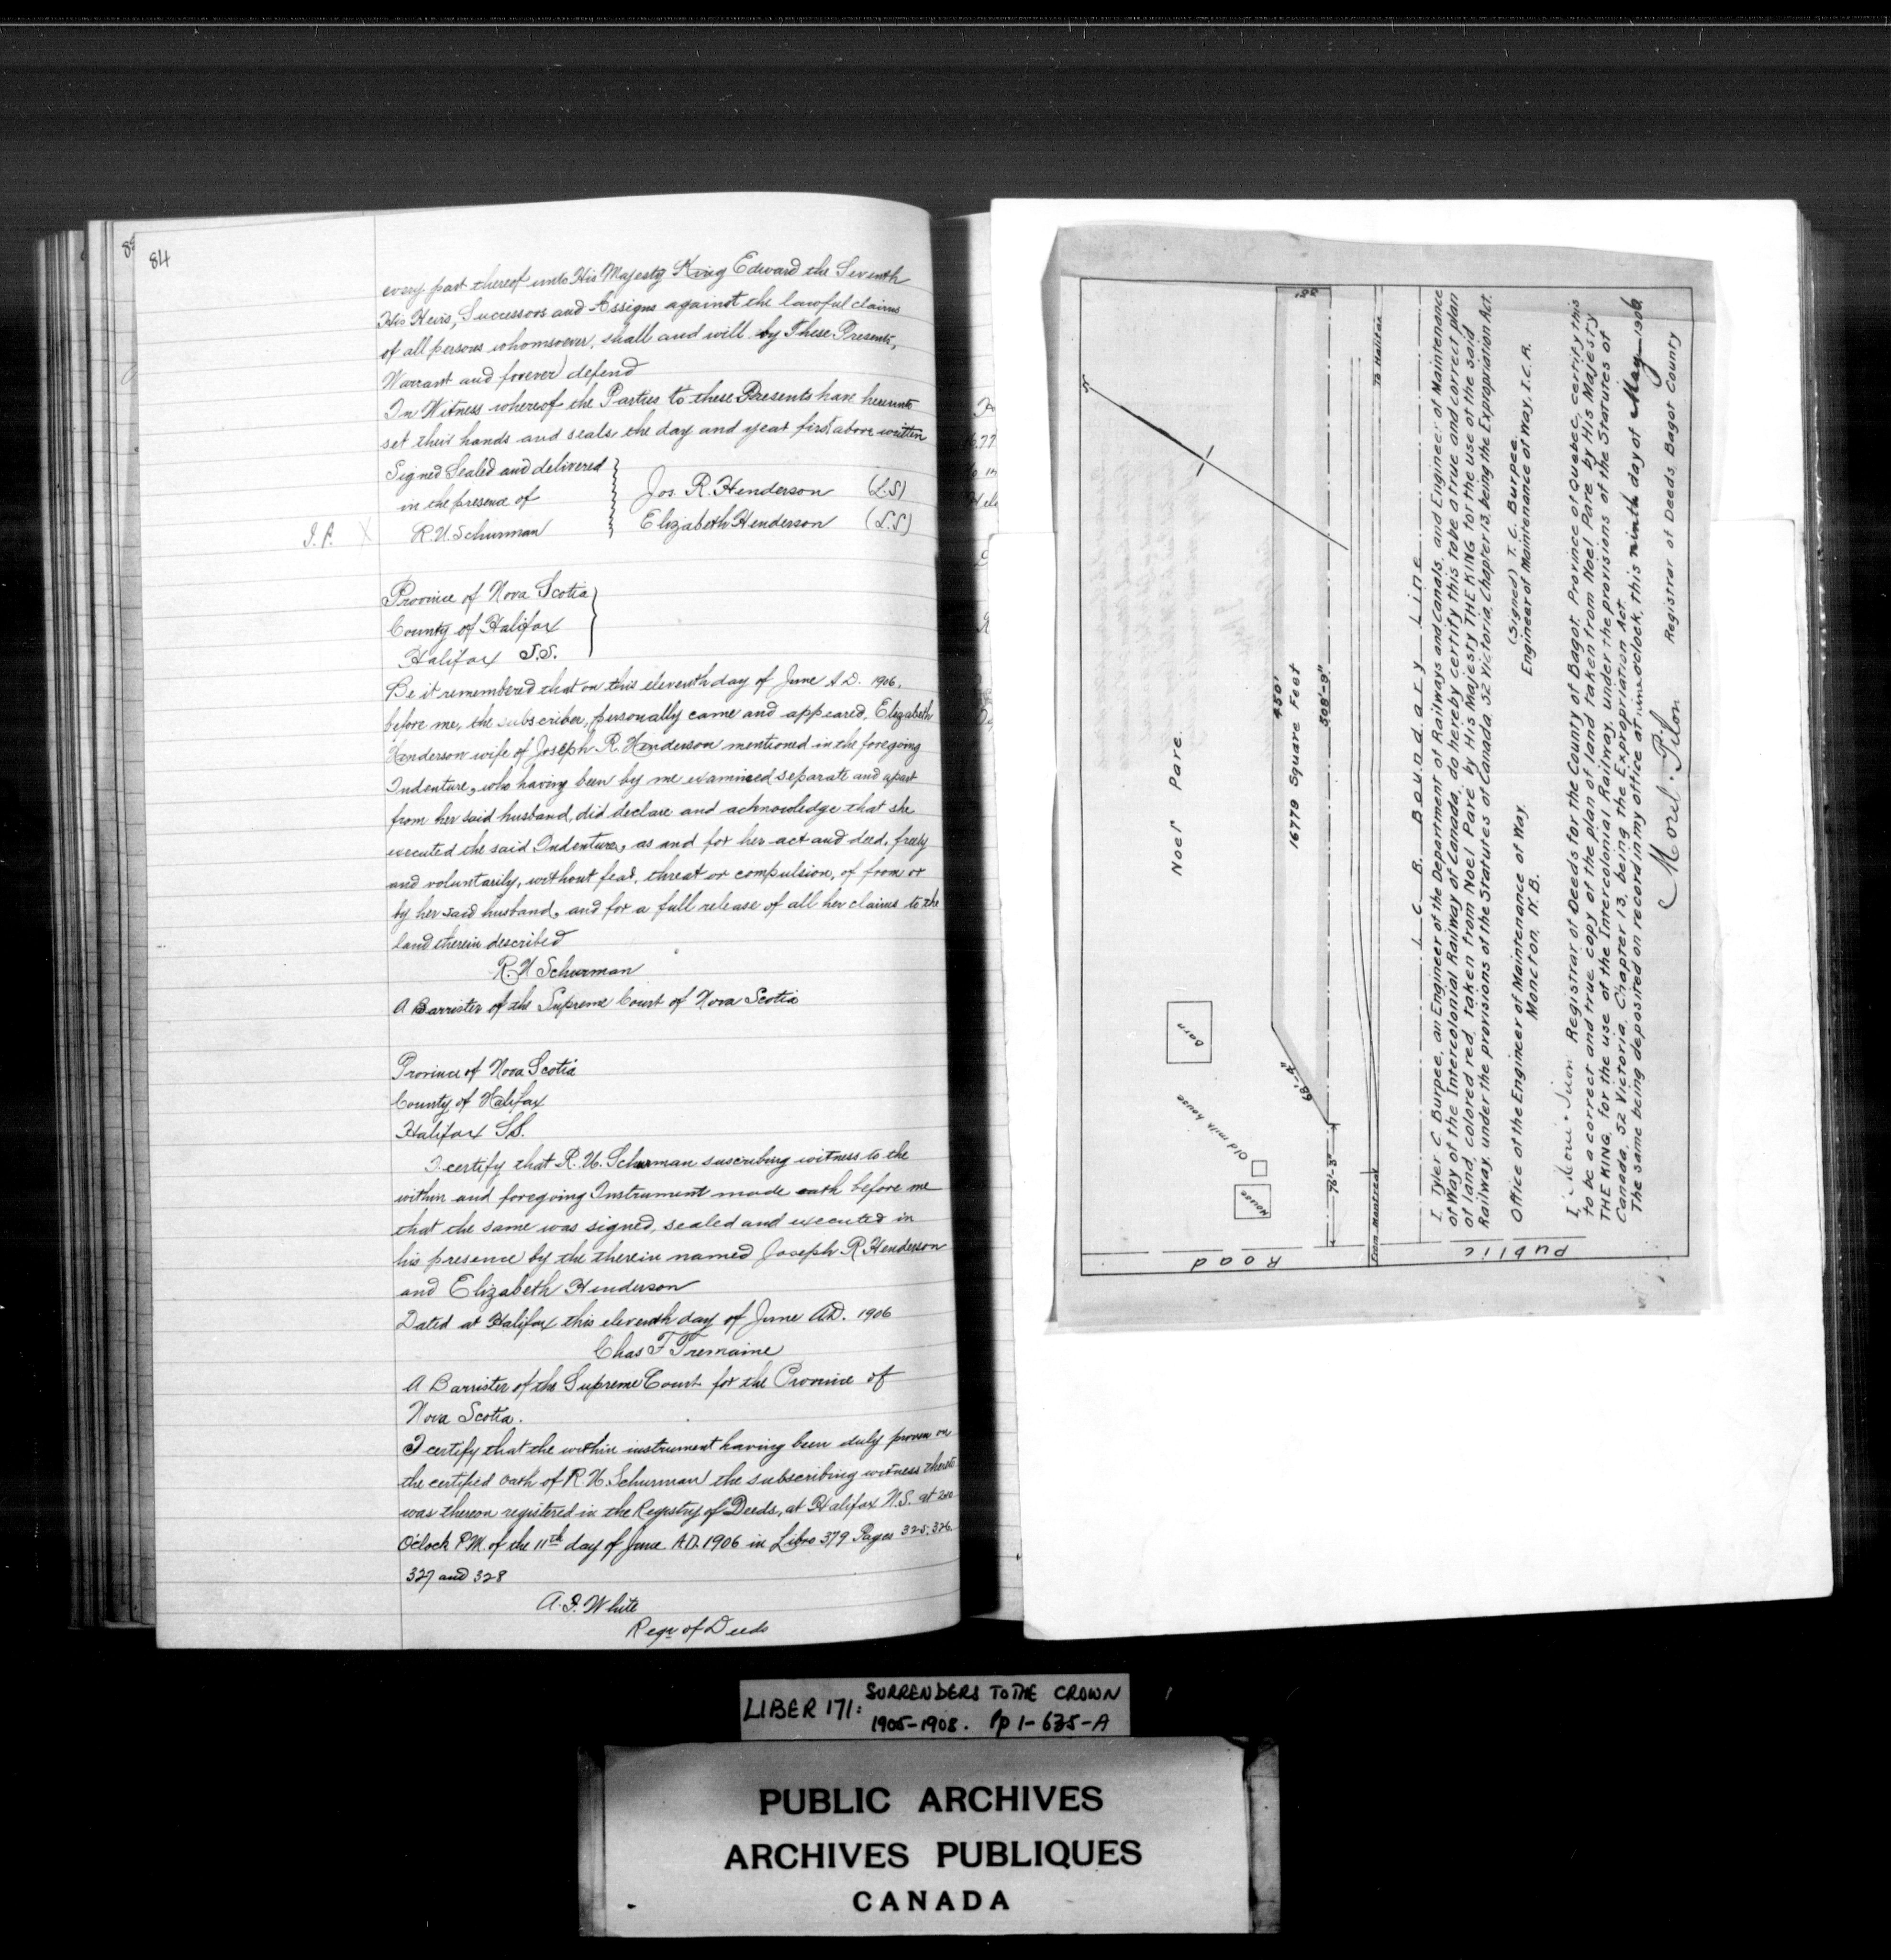 84
every part thereof unto His Majesty King Edward the Seventh
His Heirs, Successors and Assigns against the lawful claims
of all persons whomsoever, shall and will by These Presents,
Warrant and forever defend
In Witness whereof the Parties to these Presents have hereunto
set their hands and seals the day and year first above written
Signed Sealed and delivered
in the presence of
R.U. Schurman
Jos. R. Henderson (L.S)
Elizabeth Henderson (L.S)
Province of Nova Scotia
County of Halifax
Halifax S.S.
Be it remembered that on this eleventh day of June A.D. 1906,
before me, the subscriber, personally came and appeared, Elizabeth
Henderson wife of Joseph R. Henderson mentioned in the foregoing
Indenture, who having been by me examined separate and apart
from her said husband, did declare and acknowledge that she
executed the said Indenture, as and for her act and deed, freely
and voluntarily, without fear, threat or compulsion, of from or
by her said husband, and for a full release of all her claims to the
land therein described
R.U Schurman
A Barrister of the Supreme Court of Nova Scotia
Province of Nova Scotia
County of Halifax
Halifax S.S.
I certify that R. U. Schurman suscribing witness to the
within and foregoing Instrument made oath before me
that the same was signed, sealed and executed in
his presence by the therein named Joseph R Henderson
and Elizabeth Henderson
Dated at Halifax this eleventh day of June A.D. 1906
Chas F Tremaine
A Barrister of the Supreme Court for the Province of
Nova Scotia.
I certify that the within instrument having been duly proven on
the certified oath of R U. Schurman the subscribing witness thereto
was thereon registered in the Registry of Deeds, at Halifax N.S. at
O'clock P.M. of the 11th day of June A.D. 1906 in Libro 379 Pages 325, 326,
327 and 328
White
Regr of Deeds
N
Noel Pare.
450'
16779 Square Feet
508'-9"
68'-9"
78'-3"
Barn
Old milk house
House
Road
Public
From Montreal
To Halifax
I. C. R. Boundary Line
I, Tyler C. Burpee, an Engineer of the Department of Railways and Canals, and Engineer of Maintenance
of Way of the Intercolonial Railway of Canada, do hereby certify this to be a true and correct plan
of land, colored red, taken from Noel Pare by His Majesty THE KING for the use of the said
Railway, under the provisions of the Statutes of Canada, 52 Victoria, Chapter 13, being the Expropriation Act.
(Signed) T. C. Burpee.
Engineer of Maintenance of Way, I.C.R.
Office of the Engineer of Maintenance of Way.
Moncton, N.B.
I, Registrar of Deeds for the County of Bagot, Province of Quebec, certify this
to be a correct and true copy of the plan of land taken from Noel Pare by His Majesty
THE KING, for the use of the Intercolonial Railway, under the provisions of the Statutes of
Canada, 52 Victoria, Chapter 13, being the Expropriation Act.
The same being deposited on record in my office at nine oclock, this ninth day of May 1906
Registrar of Deeds, Bagot County
LIBER 171: SURRENDERS TO THE CROWN
1905-1908. Pp 1-635-A
PUBLIC ARCHIVES
ARCHIVES PUBLIQUES
CANADA